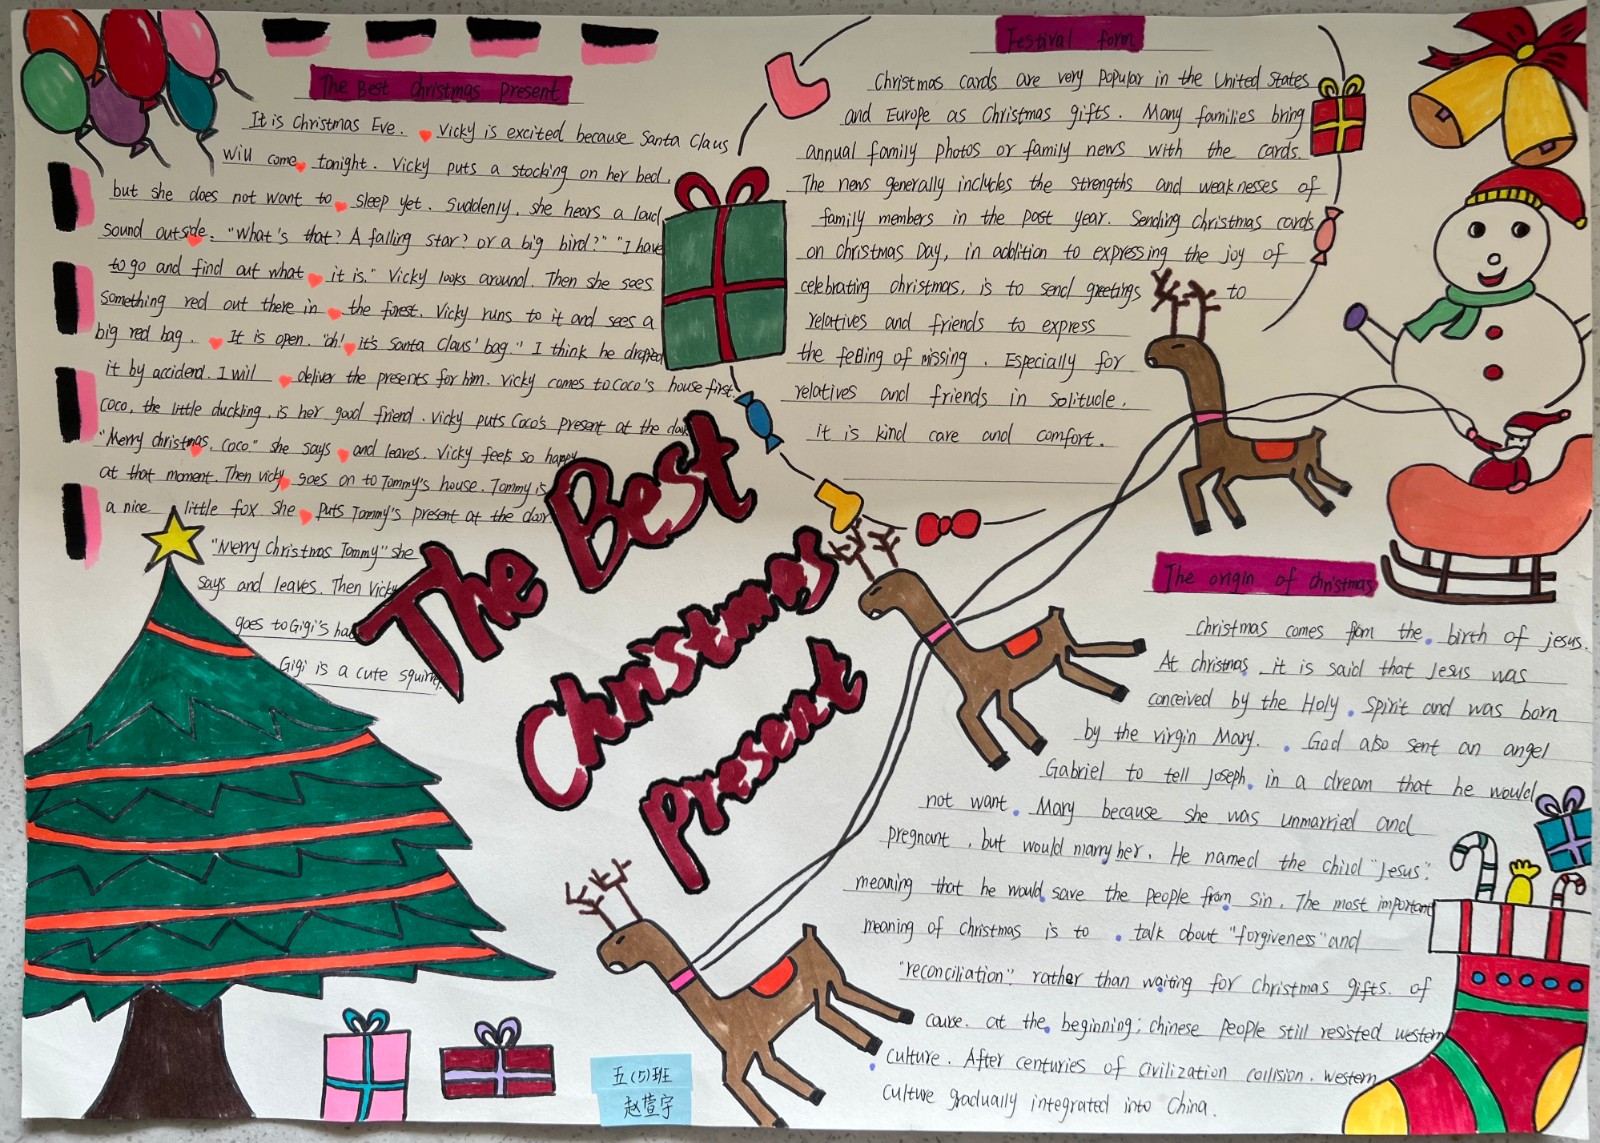 The Best Christmas present
It is Christmas Eve. Vicky is excited because Santa Claus
will come tonight. Vicky puts a stocking on her bed,
but she does not want to sleep yet. Suddenly, she hears a loud
sound outside. "What's that? A falling star? or a big bird?" "I have
to go and find out what it is." Vicky looks around. Then she sees
something red out there in the forest. Vicky runs to it and sees a
big red bag. It is open. "oh! it's Santa Claus' bag." I think he dropped
it by accidend. I will deliver the presents for him. Vicky comes to Coco's house first.
Coco, the little duckling, is her good friend. Vicky puts Coco's present at the
"Merry christmas, Coco." she says and leaves. Vicky feels so happy
at that moment. Then vicky goes on to Tommy's house. Tommy is
a nice little fox she puts Tommy's present at the door.
"Merry Christmas Tommy" she
says and leaves. Then Vicky
goes to Gigi's
Gigi is a cute
The Best
Christmas
present
Festival form
Christmas cards are very popular in the United States
and Europe as Christmas gifts. Many families bring
annual family photos or family news with the cards.
The news generally includes the strengths and weaknesses of
family members in the past year. Sending christmas cards
on christmas Day, in addition to expressing the joy of
celebrating christmas, is to send greetings to
relatives and friends to express
the feeling of missing. Especially for
relatives and friends in solitude.
it is kind care and comfort.
The origin of christmas
christmas comes from the birth of jesus.
At christmas it is said that Jesus was
conceived by the Holy Spirit and was born
by the virgin Mary. God also sent an angel
Gabriel to tell Joseph in a dream that he would
not want Mary because she was unmarried and
pregnant, but would marry her. He named the child "jesus".
meaning that he would save the people from sin. The most important
meaning of christmas is to talk about "forgiveness" and
"reconciliation". rather than waiting for christmas gifts. of
couse. at the beginning; chinese people still resisted western
culture. After centuries of civilization collision. western
culture gradually integrated into China.
五(5)班
赵萱宇